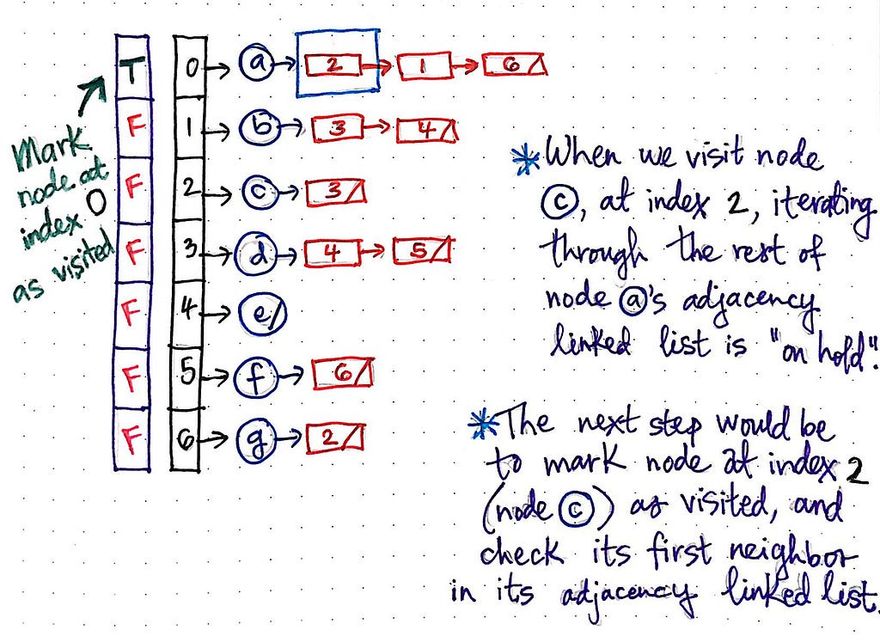 T 0 a 2 1 6
F 1 b 3 4
F 2 c 3
F 3 d 4 5
F 4 e
F 5 f 6
F 6 g 2
Mark
node at
index 0
as visited
*When we visit node
c, at index 2, iterating
through the rest of
node a's adjacency
linked list is "on hold".
*The next step would be
to mark node at index 2
(node c) as visited, and
check its first neighbor
in its adjacency linked list.